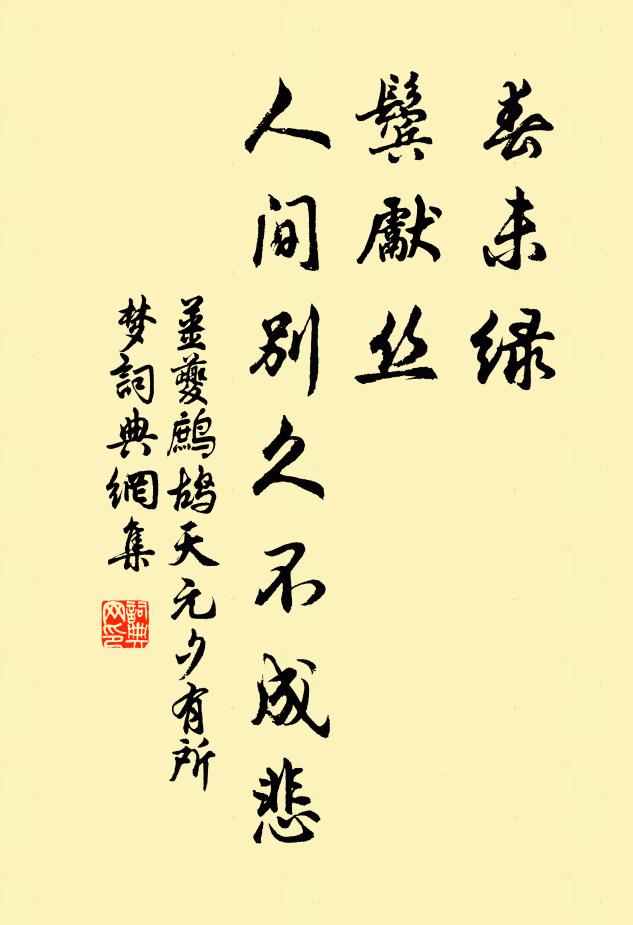 春未绿
鬓獻丝
人间别久不成悲
薑夔鷓鴣天元夕有所
梦詞典網集
詞典
网印